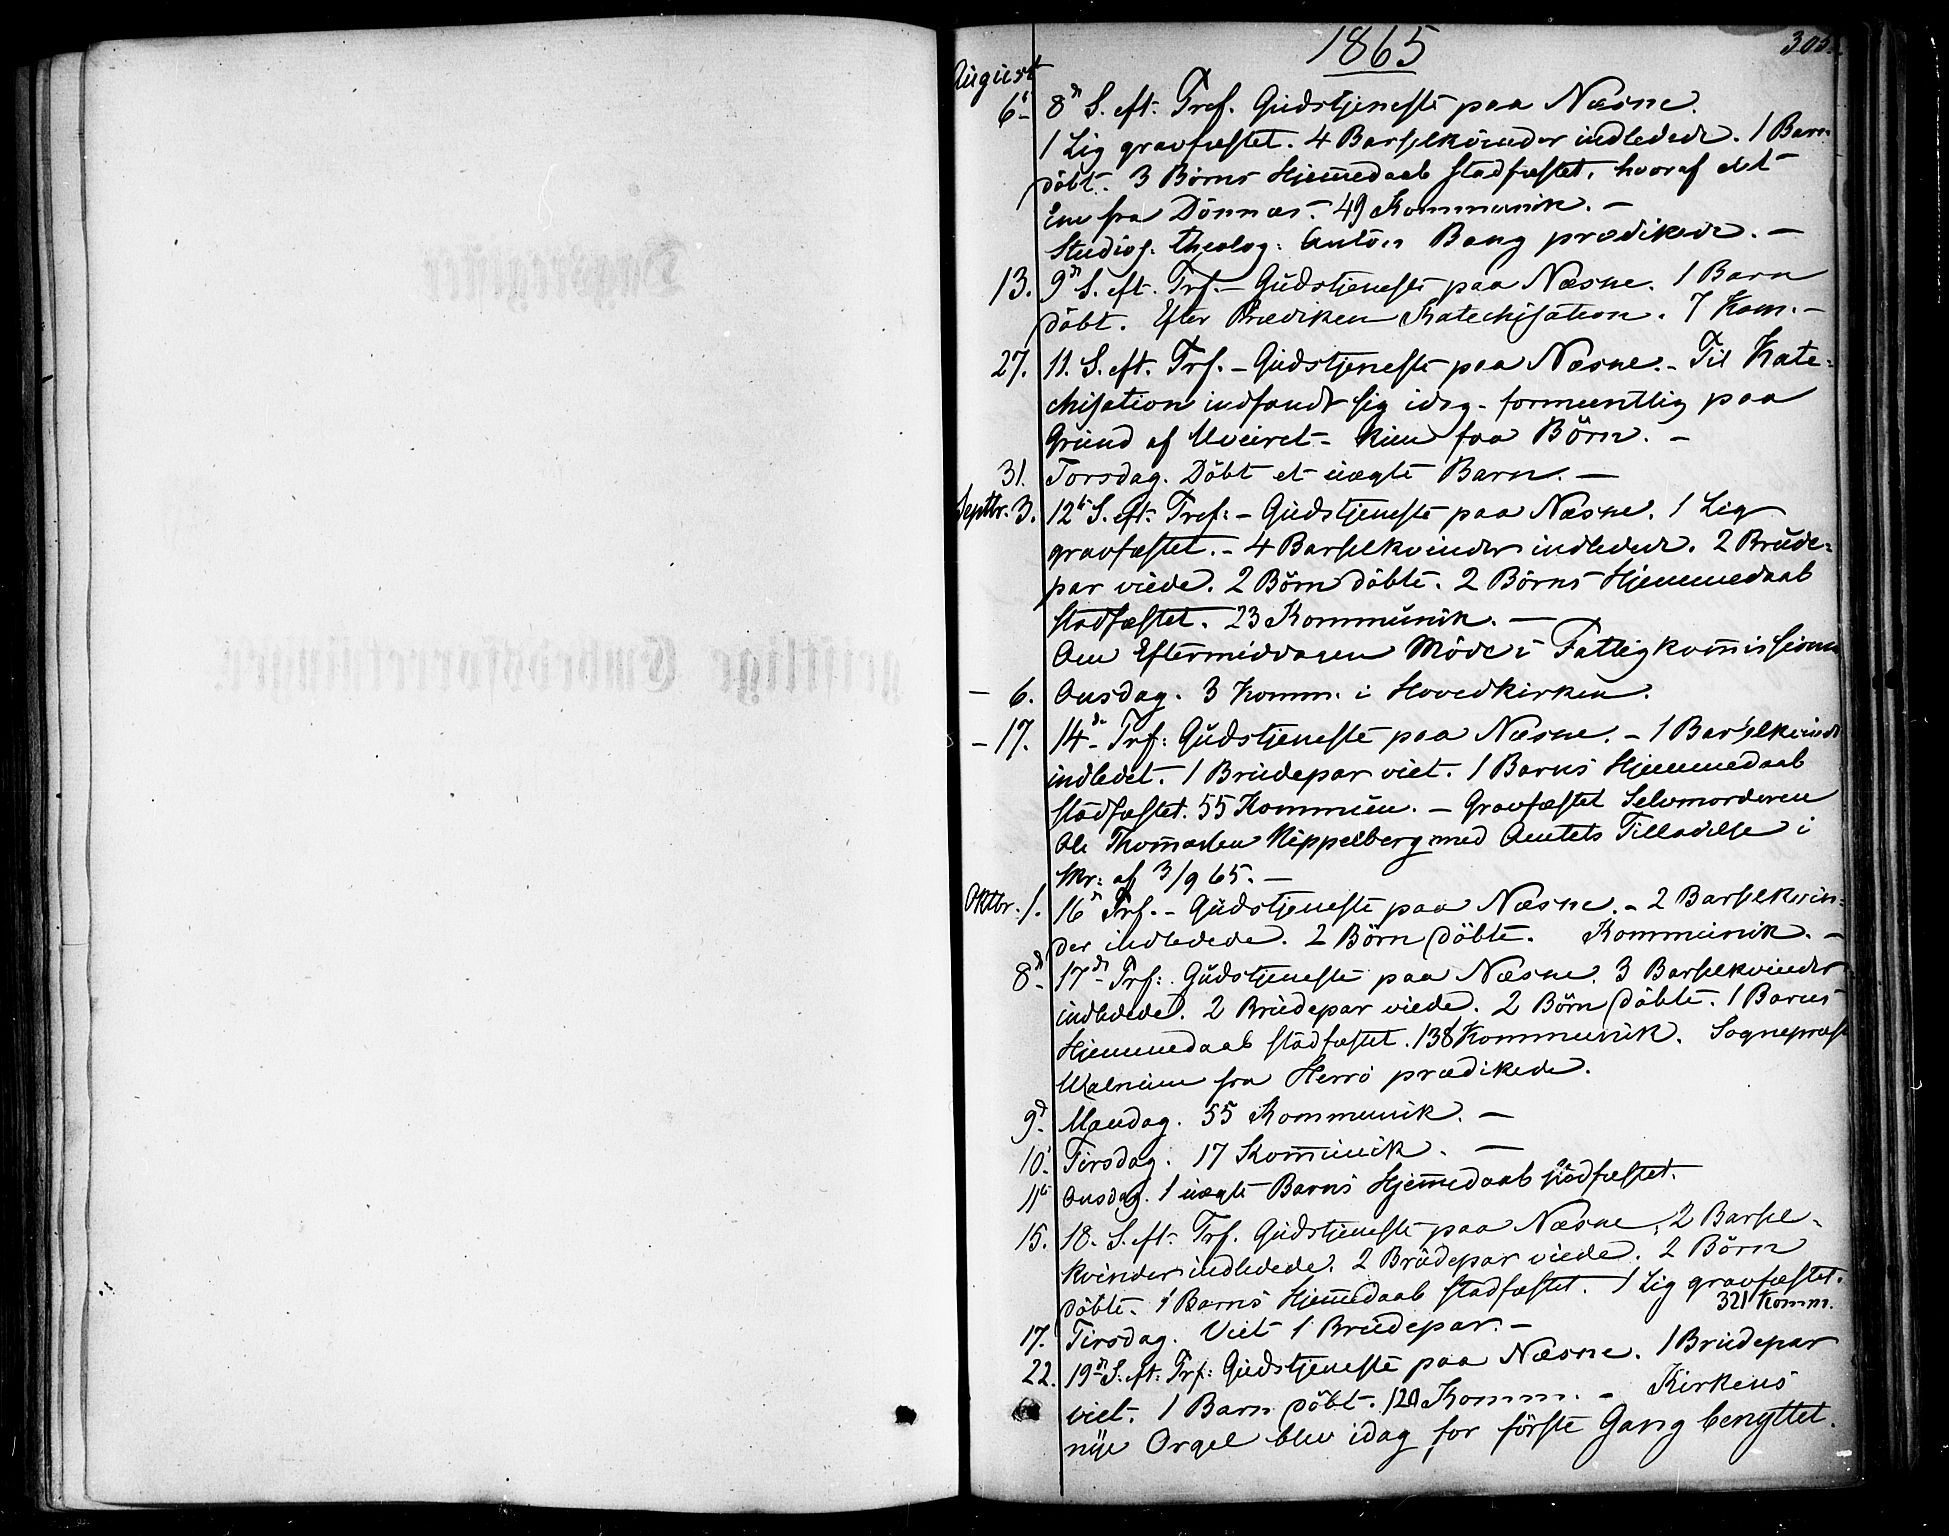 1865
305.
August
6te 8de S. eft. Tref. Gudstjeneste paa Næsne.
1 Lig gravfæstet. 4 Barselkvinder indledede. 1 Barn
döbt. 3 Börns Hjemedaab stadfæstet, hvoraf det
ene fra Dönnæs. 49 Kommunik. –
Studios. theolog: Anton Bang prædikede. –
13. 9de S. eft. Trf. – Gudstjeneste paa Næsne. 1 Barn
döbt. Efter Prædiken Katechisation. 7 Kom. –
27. 11. S. eft. Trf. – Gudstjeneste paa Næsne. – Til Kate-
chisation indfandt sig idag – formeentlig paa
Grund af Uveiret – kun faa Börn. –
31. Torsdag. Döbt et uægte Barn. –
Septbr. 3. 12te S. eft. Tref: – Gudstjeneste paa Næsne. 1 Lig
gravfæstet. – 4 Barselkvinder indledede. 2 Brude-
par viede. 2 Börn döbte. 2 Börns Hjemmedaab
stadfæstet. 23 Kommunik. –
Om Eftermiddagen Möde i Fattigkomissionen
– 6. Onsdag. 3 Komm. i Hovedkirken.
– 17. 14de Trf: Gudstjeneste paa Næsne. – 1 Barselkvinde
indledet. 1 Brudepar viet. 1 Barns Hjemmedaab
stadfæstet. 55 Kommun. – Gravfæstet Selvmorderen
Ole Thomassen Nippelberg med Amtets Tilladelse i
Skr: af 3/9 65. –
Oktbr. 1. 16de Trf. – Gudstjeneste paa Næsne. – 2 Barselkvin-
der indledede. 2 Börn döbte. Kommunik. –
8de 17de Trf: Gudstjeneste paa Næsne. 3 Barselkvinder
indledede. 2 Brudepar viede. 2 Börn döbte. 1 Barns
Hjemmedaab stadfæstet. 138 Kommunik. Sognepræst
Walnum fra Herrö prædikede.
9de Mandag. 55 Kommunik. –
10. Tirsdag. 17 Komunik. –
11te Onsdag. 1 uægte Barns Hjemedaab stadfæstet.
15. 18. S. eft. Trf. Gudstjeneste paa Næsne. 2 Barsel-
kvinder indledede. 2 Brudepar viede. 2 Börn
döbte. 1 Barns Hjemedaab stadfæstet. 1 Lig gravfæstet.
321 Komm.
17. Tirsdag. Viet 1 Brudepar. –
22. 19de S. eft. Trf: Gudstjeneste paa Næsne. 1 Brudepar
viet. 1 Barn döbt. 120 Komm. – Kirkens
nye Orgel blev idag for förste Gang benyttet.